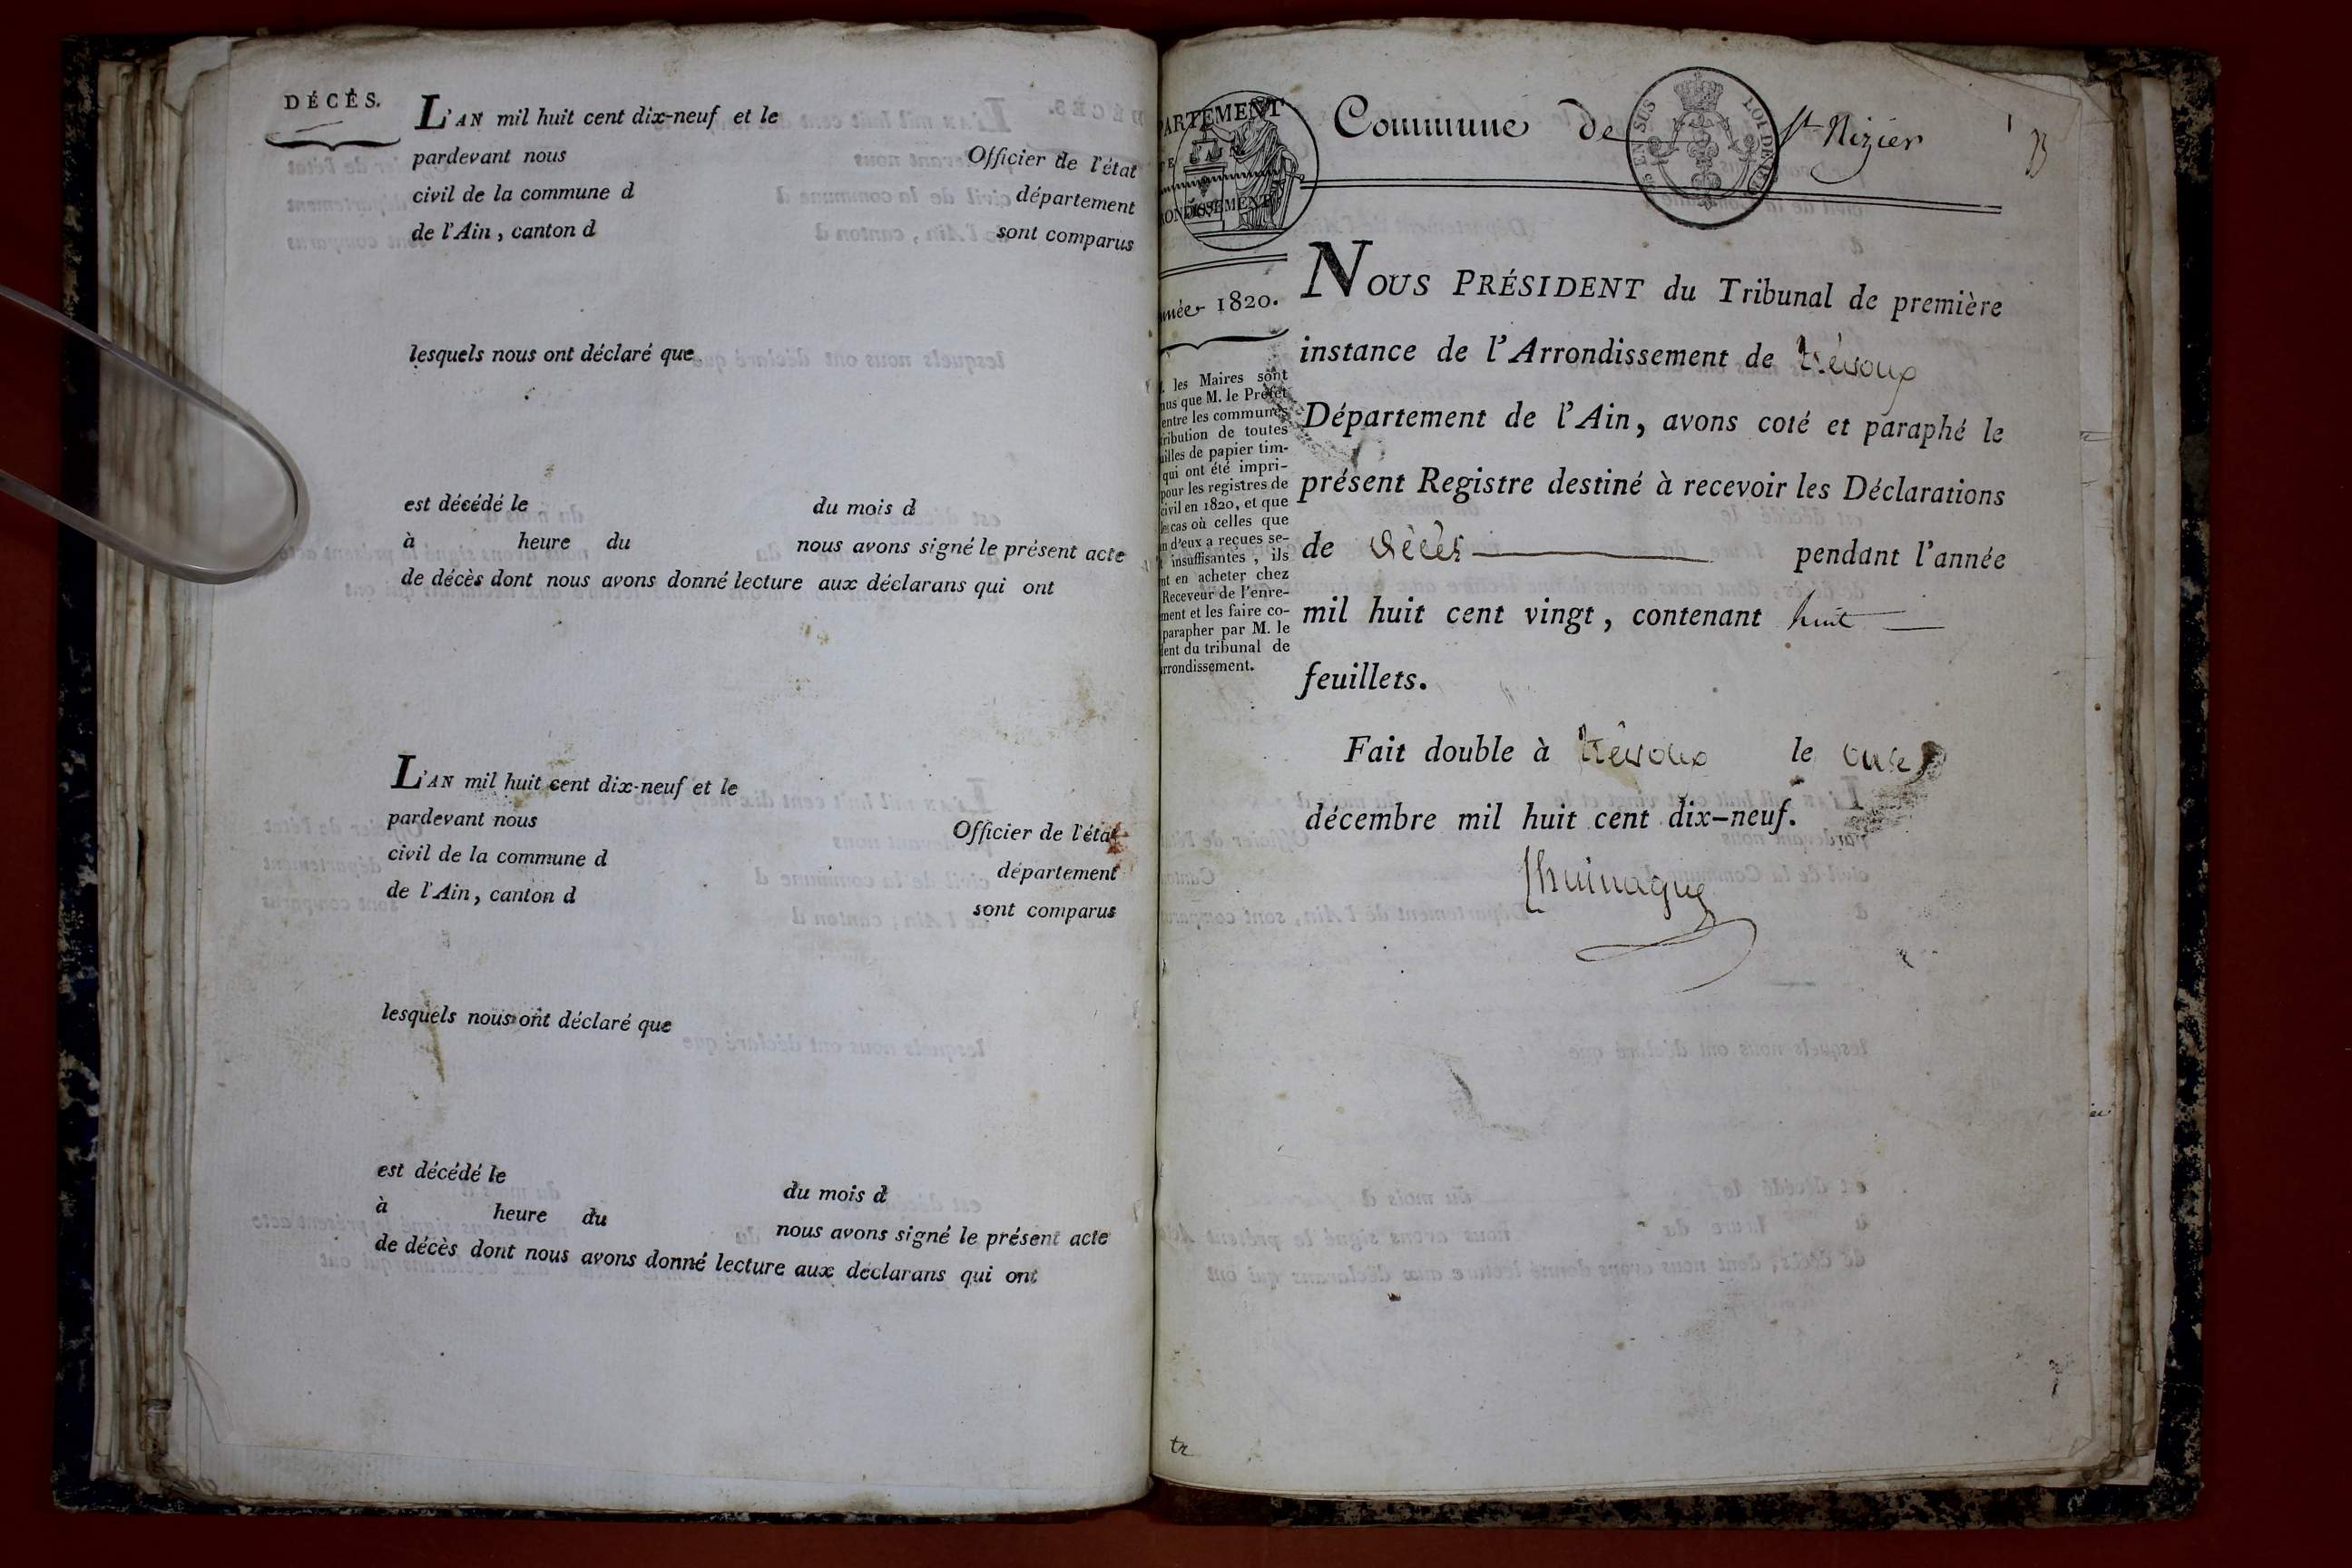 DÉCÈS.
L'AN mil huit cent dix-neuf et le
pardevant nous Officier de l'état
civil de la commune d département
de l'Ain, canton d sont comparus
lesquels nous ont déclaré que
est décédé le du mois d
à heure du nous avons signé le présent acte
de décès dont nous avons donné lecture aux déclarans qui ont
L'AN mil huit cent dix-neuf et le
pardevant nous Officier de l'état
civil de la commune d département
de l'Ain, canton d sont comparus
lesquels nous ont déclaré que
est décédé le du mois d
à heure du nous avons signé le présent acte
de décès dont nous avons donné lecture aux déclarans qui ont
PARTEMENT
ONDISSEMENT
Commune de St Nizier
EN SUS
LOI DE
1
née 1820.
les Maires sont
nus que M. le Préfet
entre les communes
tribution de toutes
uilles de papier tim-
qui ont été impri-
pour les registres de
civil en 1820, et que
les cas où celles que
n d'eux a reçues se-
t insuffisantes, ils
nt en acheter chez
Receveur de l'enre-
ment et les faire co-
parapher par M. le
dent du tribunal de
rrondissement.
NOUS PRÉSIDENT du Tribunal de première
instance de l'Arrondissement de trévoux
Département de l'Ain, avons coté et paraphé le
présent Registre destiné à recevoir les Déclarations
de décès pendant l'année
mil huit cent vingt, contenant huit
feuillets.
Fait double à trévoux le onze
décembre mil huit cent dix-neuf.
tr